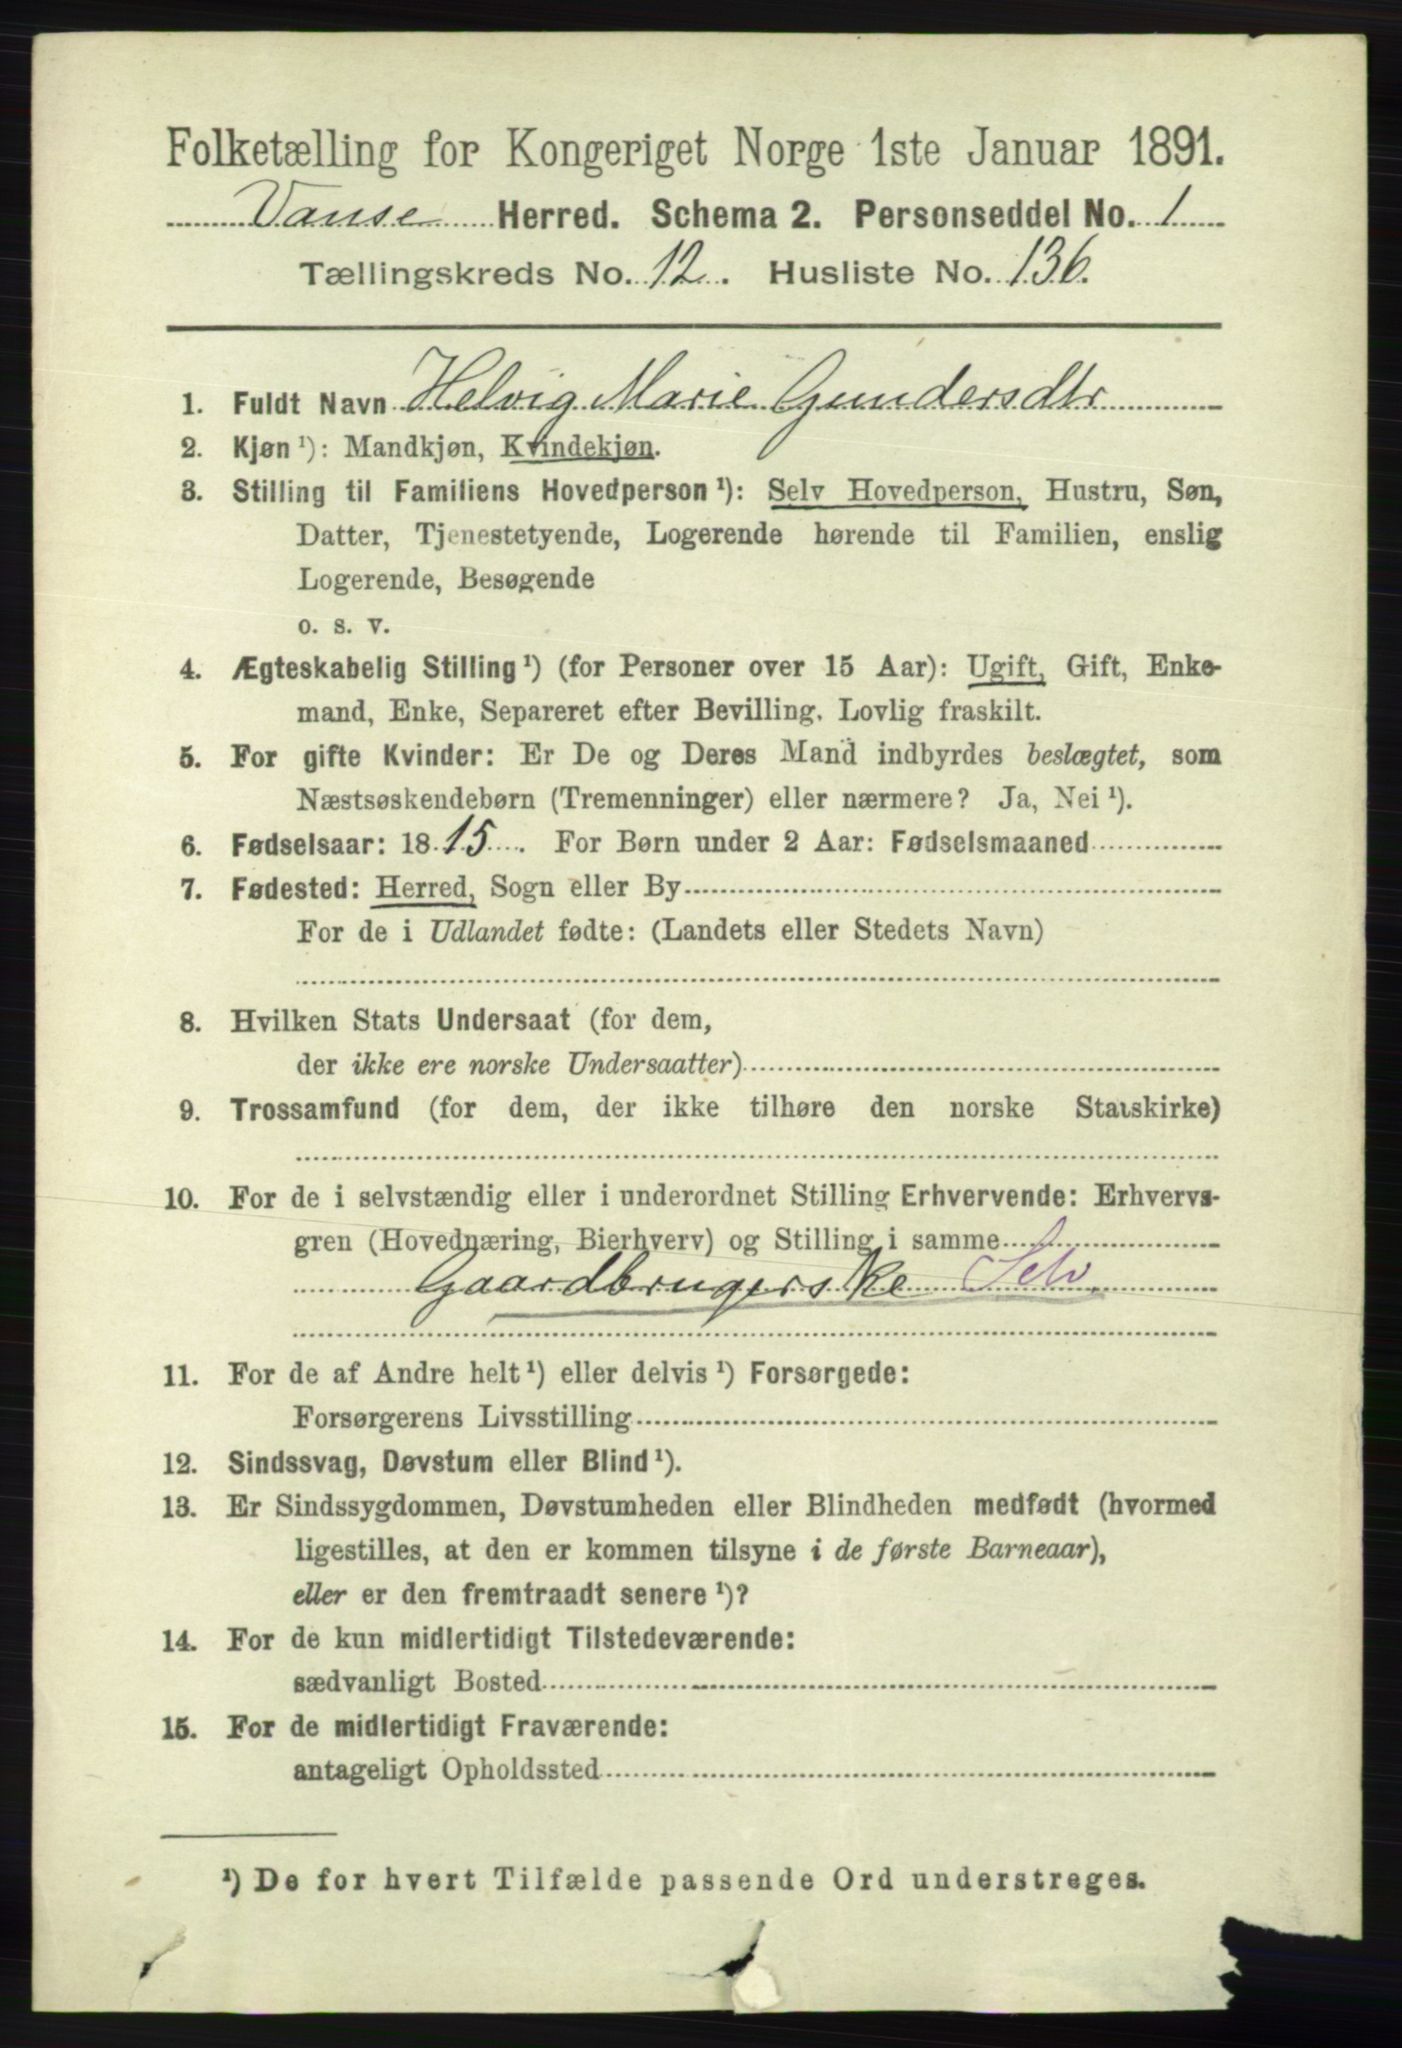 Folketælling for Kongeriget Norge 1ste Januar 1891.
Vanse Herred. Schema 2. Personseddel No. 1
Tællingskreds No. 12. Husliste No. 136.
1. Fuldt Navn Helvig Marie Gundersdtr
2. Kjøn ¹): Mandkjøn, Kvindekjøn.
3. Stilling til Familiens Hovedperson ¹): Selv Hovedperson, Hustru, Søn,
Datter, Tjenestetyende, Logerende hørende til Familien, enslig
Logerende, Besøgende
o. s. v.
4. Ægteskabelig Stilling ¹) (for Personer over 15 Aar): Ugift, Gift, Enke-
mand, Enke, Separeret efter Bevilling. Lovlig fraskilt.
5. For gifte Kvinder: Er De og Deres Mand indbyrdes beslægtet, som
Næstsøskendebørn (Tremenninger) eller nærmere? Ja, Nei ¹).
6. Fødselsaar: 1815. For Børn under 2 Aar: Fødselsmaaned
7. Fødested: Herred, Sogn eller By
For de i Udlandet fødte: (Landets eller Stedets Navn)
8. Hvilken Stats Undersaat (for dem,
der ikke ere norske Undersaatter)
9. Trossamfund (for dem, der ikke tilhøre den norske Statskirke)
10. For de i selvstændig eller i underordnet Stilling Erhvervende: Erhvervs-
gren (Hovednæring, Bierhverv) og Stilling i samme
Gaardbrugerske Selv
11. For de af Andre helt ¹) eller delvis ¹) Forsørgede:
Forsørgerens Livsstilling
12. Sindssvag, Døvstum eller Blind ¹).
13. Er Sindssygdommen, Døvstumheden eller Blindheden medfødt (hvormed
ligestilles, at den er kommen tilsyne i de første Barneaar),
eller er den fremtraadt senere ¹)?
14. For de kun midlertidigt Tilstedeværende:
sædvanligt Bosted
15. For de midlertidigt Fraværende:
antageligt Opholdssted
¹) De for hvert Tilfælde passende Ord understreges.